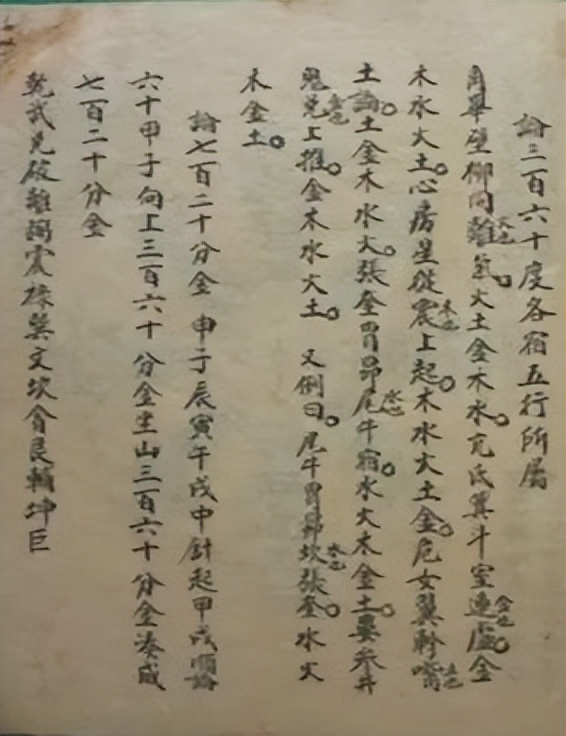 論三百六十度各宿五行所屬
角畢壁柳向離火也氣火土金木水亢氐箕斗室連虛金也金
木水火土心房星從震木也上起木水火土金危女翼軫嘴土也
土論土金木水火張奎胃昴尾水也牛宿水火木金土婁參井
鬼兌金也上推金木水火土又倒曰尾牛胃昴坎水也張奎水火
木金土
論七百二十分金申子辰寅午戌中針起甲戌順論
六十甲子向上三百六十分金坐山三百六十分金湊成
七百二十分金
乾武兌破離祿震祿巽文坎貪艮輔坤巨